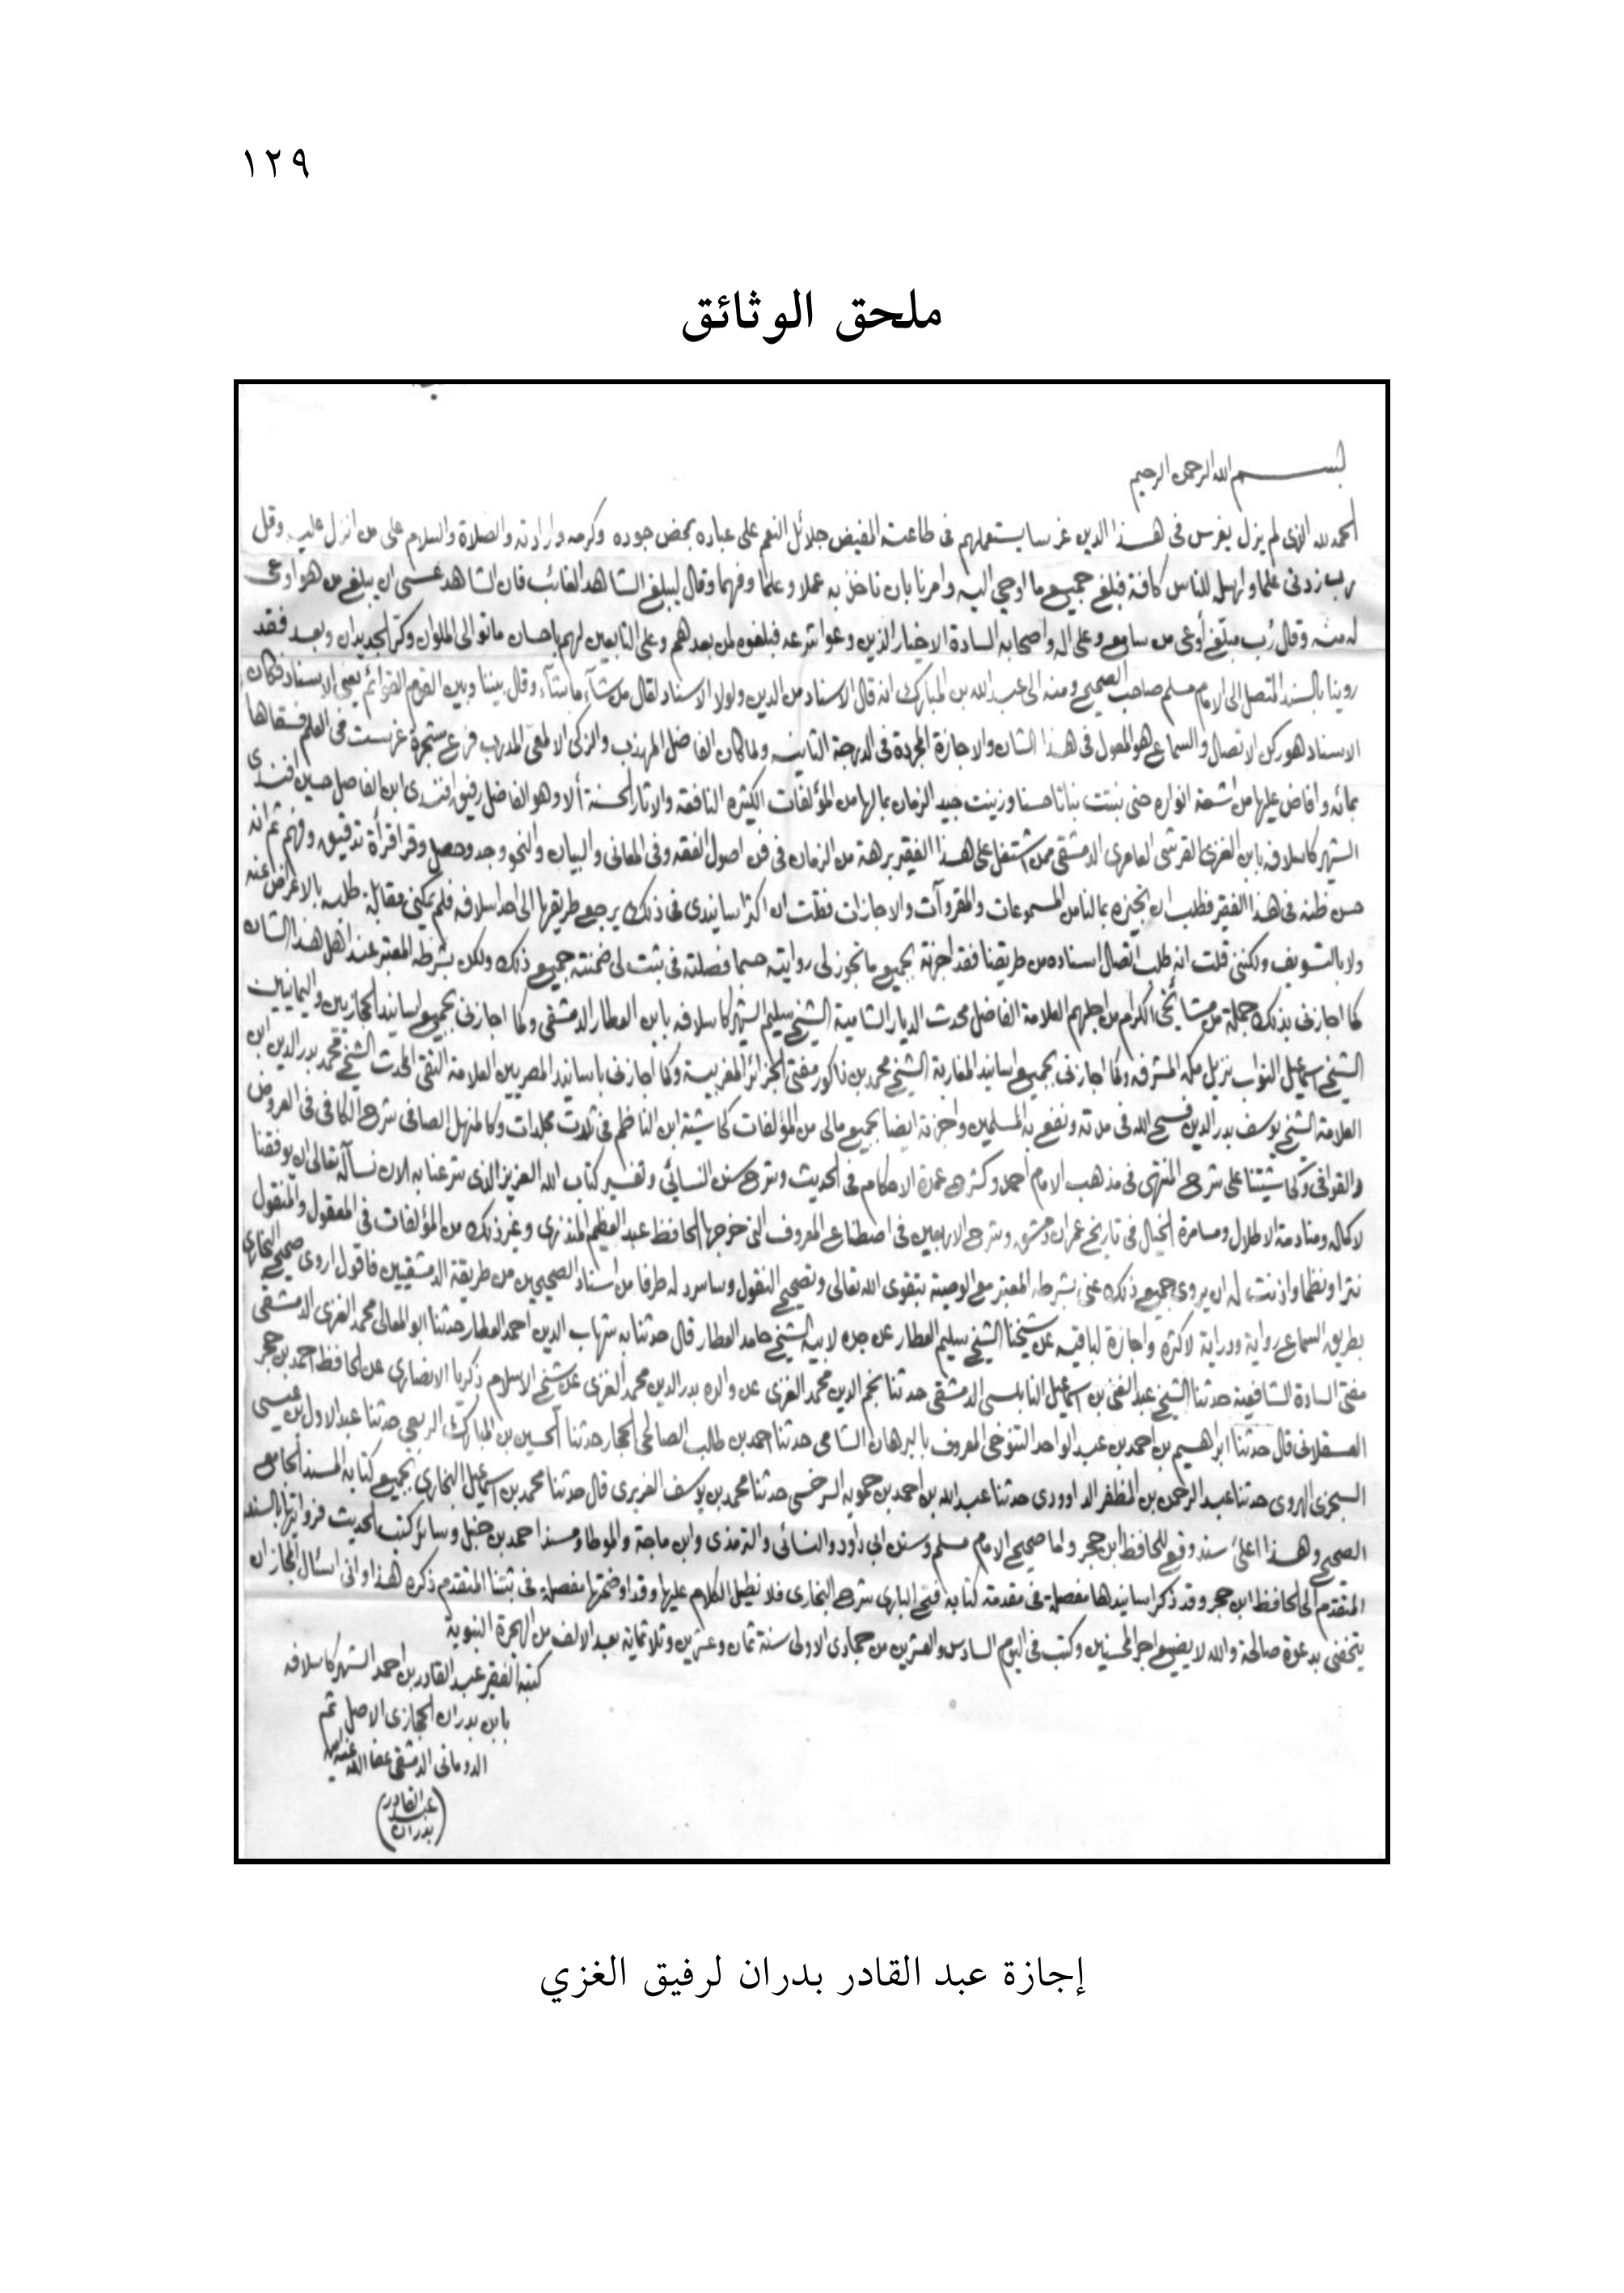 ١٢٩
ملحق الوثائق
بسم الله الرحمن الرحيم
الحمد لله الذى لم يزل يغرس فى هذا الدين غرسا يستعملهم فى طاعته المفيض جلائل النعم على عباده بمحض جوده وكرمه وارادته والصلاة والسلام على من انزل عليه وقل
رب زدنى علما وارسل للناس كافة فبلغ جميع ما اوحي اليه وامرنا بان ناخذ به عملا وعلما وفهما وقال ليبلغ الشاهد الغائب فان الشاهد عسى ان يبلغ من هو اوعى
له منه وقال رُب مبلَّغ أوعى من سامع وعلى اله واصحابه السادة الاخيار الذين وعوا شرعه فبلغوه لمن بعدهم وعلى التابعين لهم باحسان ما توالى الملوان وكر الجديدان وبعد فقد
روينا بالسند المتصل الى الامام مسلم صاحب الصحيح ومنه الى عبد الله بن المبارك انه قال الاسناد من الدين ولولا الاسناد لقال من شآء ما شآء وقال بيننا وبين القوم القوائم يعنى الاسناد فكان
الاسناد هو ركن الاتصال والسماع هو المعول فى هذا الشان والاجازة المجردة فى الدرجة الثانيه ولما كان الفاضل المهذب والزكى الالمعى المدرب فرع شجرة غرست فى العلم فسقاها
بمائه وافاض عليها من اشعة انواره حتى نبتت نباتا حسنا وزينت جيد الزمان بمالها من المؤلفات الكثيره النافعه والاثار الحسنة ألا وهو الفاضل رفيق افندى ابن الفاضل حسين افندى
الشهير كاسلافه بابن الغزى القرشى العامرى الدمشقى ممن اشتغل على هذا الفقير برهة من الزمان فى فن اصول الفقه وفى المعانى والبيان والنحو وجد وحصل وقرا قرأة تدقيق وفهم ثم انه
حسن ظنه فى هذا الفقير فطلب ان نجيزه بمالنا من المسموعات والمقروآت والاجازات فقلت ان اكثر اسانيدى فى ذلك يرجع طريقها الى احد اسلافه فلم يمكنى مقابلة طلبه بالاعراض عنه
ولا بالتسويف ولكننى قلت انه طلب اتصال اسناده من طريقنا فقد اجزته بجميع ما تجوز لى روايته حسبما فصلته فى ثبت لى ضمنته جميع ذلك ولكن بشرطه المعتبر عند اهل هذا الشان
كما اجازنى بذلك جملة من مشائخى الكرام من اجلهم العلامة الفاضل محدث الديار الشامية الشيخ سليم الشهير كاسلافه بابن العطار الدمشقى وكما اجازنى بجميع اسانيد الحجازيين واليمانيين
الشيخ اسماعيل النواب نزيل مكه المشرفه وكما اجازنى بجميع اسانيد المغاربة الشيخ محمد بن ناكور مفتى الجزائر المغربية وكما اجازنى باسانيد المصريين العلامة التقى المحدث الشيخ محمد بدر الدين ابن
العلامة الشيخ يوسف بدر الدين فسح الله فى مدته ونفع به المسلمين واجزته ايضا بجميع مالى من المؤلفات كحاشية ابن الناظم فى ثلاث مجلدات وكالمنهل الصافى شرح الكافى فى العروض
والقوافى وكحاشيتنا على شرح المنتهى فى مذهب الامام احمد وكشرح عمدة الاحكام فى الحديث وشرح سنن النسائي وتفسير كتاب الله العزيز الذى شرعنا به الان نسأله تعالى ان يوفقنا
لاكماله ومنادمة الاطلال ومسامرة الخيال فى تاريخ عمران دمشق وشرح الاربعين فى اصطناع المعروف التى خرجها الحافظ عبد العظيم المنذرى وغير ذلك من المؤلفات فى المعقول والمنقول
نثرا ونظما واذنت له ان يروى جميع ذلك عنى بشرطه المعتبر مع الوصية بتقوى الله تعالى وتصحيح النقول وساسرد له طرفا من اسناد الصحيحين من طريقة الدمشقيين فاقول اروى صحيح البخارى
بطريق السماع رواية ودراية لاكثره واجازة لباقيه عن شيخنا الشيخ سليم العطار عن جده لابيه الشيخ حامد العطار قال حدثنا به شهاب الدين احمد العطار حدثنا ابو المعالى محمد الغزى الدمشقى
مفتى السادة الشافعية حدثنا الشيخ عبد الغنى بن اسماعيل النابلسى الدمشقى حدثنا نجم الدين محمد الغزى عن والده بدر الدين محمد الغزى عن شيخ الاسلام زكريا الانصارى عن الحافظ احمد بن حجر
العسقلانى قال حدثنا ابراهيم بن احمد بن عبد الواحد التنوخى المعروف بالبرهان الشامى حدثنا احمد بن طالب الصالحى الحجار حدثنا الحسين بن المبارك الربعى حدثنا عبد الاول بن عيسى
السجزى الهروى حدثنا عبد الرحمن بن المظفر الداوودى حدثنا عبد الله بن احمد بن حمويه السرخسى حدثنا محمد بن يوسف الفربرى قال حدثنا محمد بن اسماعيل البخارى بجميع كتابه المسند الجامع
الصحيح وهذا اعلى سند وقع للحافظ ابن حجر واما صحيح الامام مسلم وسنن ابى داود والنسائى والترمذى وابن ماجة والموطا ومسند احمد بن حنبل وسائر كتب الحديث فروايتها بالسند
المتقدم الى الحافظ ابن حجر وقد ذكر اسانيدها مفصلة فى مقدمة كتابه فتح البارى شرح البخارى فلا نطيل الكلام عليها وقد اوضحتها مفصلة فى ثبتنا المتقدم ذكره هذا وانى اسئال المجاز ان
يتحفنى بدعوة صالحة والله لا يضيع اجر المحسنين وكتب فى اليوم السادس والعشرين من جمادى الاولى سنة ثمان وعشرين وثلاثمائة بعد الالف من الهجرة النبوية
كتبه الفقير عبد القادر بن احمد الشهير كاسلافه
بابن بدران الحجازى الاصل ثم
الدومانى الدمشقى عفا الله عنه
عبد القادر
بدران
إجازة عبد القادر بدران لرفيق الغزي